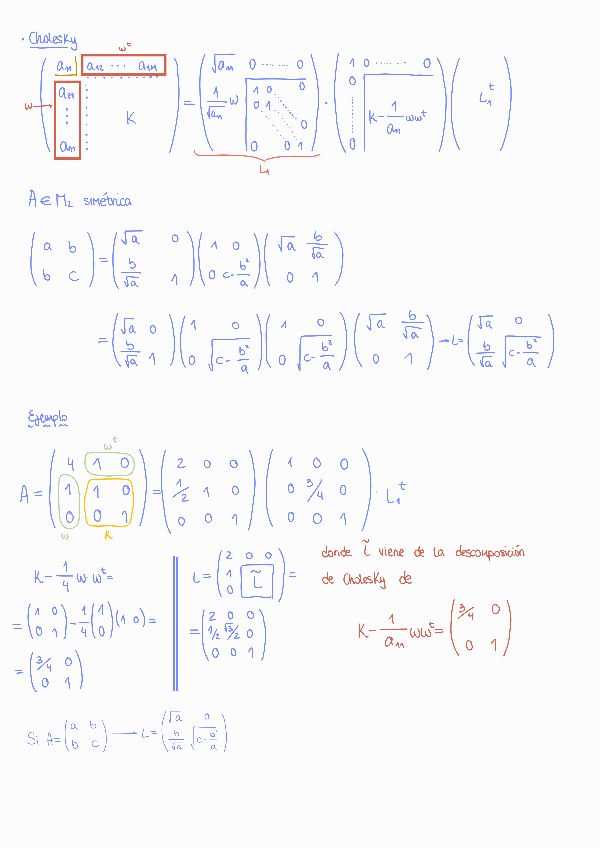 · Cholesky
wᵗ
w → ( a₁₁ a₁₂ ··· a₁ₙ ; a₂₁ ⋮ aₙ₁ K ) = ( √a₁₁ 0 ······ 0 ; 1/√a₁₁ w 1 0 0 ; 0 1 0 ; 0 0 1 ) · ( 1 0 ······ 0 ; 0 ⋮ 0 K - 1/a₁₁ wwᵗ ) ( L₁ᵗ )
L₁
A ∈ M₂ simétrica
( a b ; b c ) = ( √a 0 ; b/√a 1 ) ( 1 0 ; 0 c - b²/a ) ( √a b/√a ; 0 1 )
= ( √a 0 ; b/√a 1 ) ( 1 0 ; 0 √(c - b²/a) ) ( 1 0 ; 0 √(c - b²/a) ) ( √a b/√a ; 0 1 ) → L = ( √a 0 ; b/√a √(c - b²/a) )
Ejemplo
wᵗ
A = ( 4 1 0 ; 1 1 0 ; 0 0 1 ) = ( 2 0 0 ; 1/2 1 0 ; 0 0 1 ) ( 1 0 0 ; 0 3/4 0 ; 0 0 1 ) · L₁ᵗ
w K
K - 1/4 w·wᵗ =
= ( 1 0 ; 0 1 ) - 1/4 ( 1 ; 0 ) ( 1 0 ) =
= ( 3/4 0 ; 0 1 )
L = ( 2 0 0 ; 1 0 L̃ ) =
= ( 2 0 0 ; 1/2 √3/2 0 ; 0 0 1 )
donde L̃ viene de la descomposición
de Cholesky de
K - 1/a₁₁ wwᵗ = ( 3/4 0 ; 0 1 )
Si A = ( a b ; b c ) → L = ( √a 0 ; b/√a √(c - b²/a) )